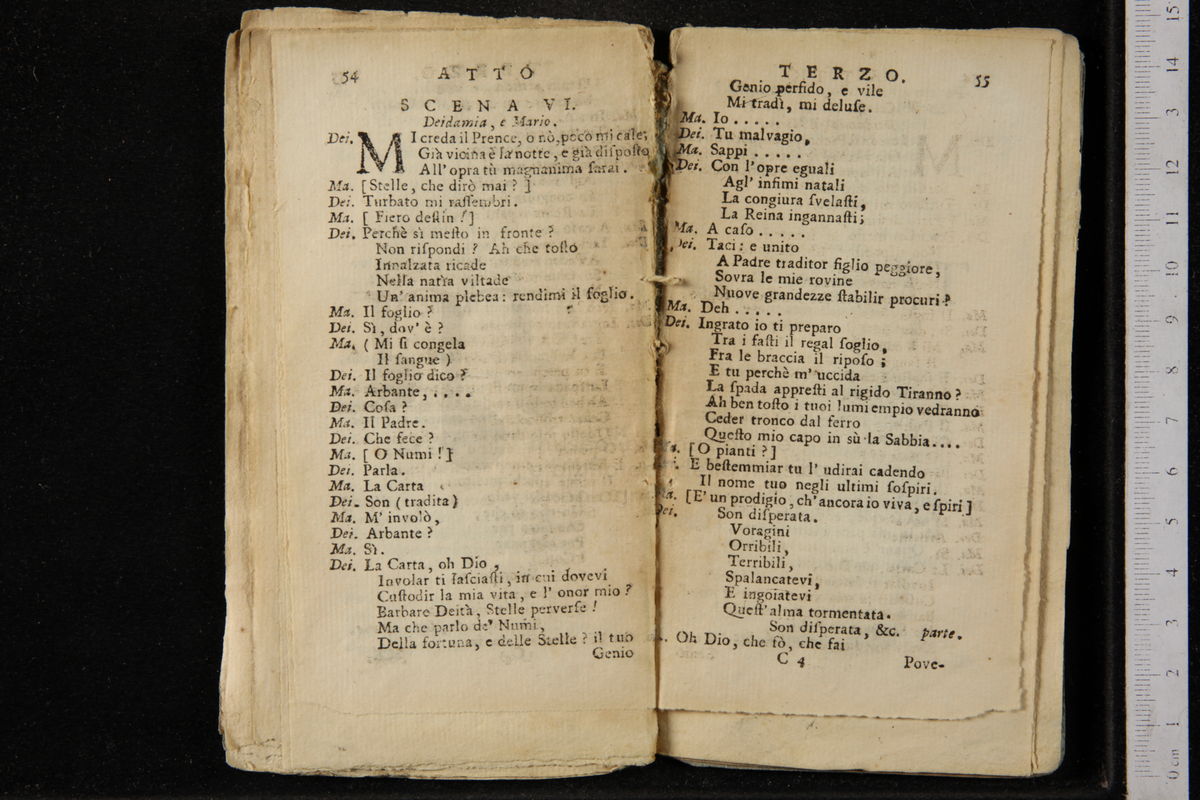 54 ATTO
SCENA VI.
Deidamia, e Mario.
Dei. MI creda il Prence, o nò, poco mi cale;
Già vicina è la notte, e già diſpoſto
All' opra tù magnanima ſarai.
Ma. [Stelle, che dirò mai? ]
Dei. Turbato mi raſſembri.
Ma. [ Fiero deſtin !]
Dei. Perchè sì meſto in fronte ?
Non riſpondi ? Ah che toſto
Innalzata ricade
Nella natia viltade
Un' anima plebea: rendimi il foglio.
Ma. Il foglio ?
Dei. Sì, dov' è ?
Ma. ( Mi ſi congela
Il ſangue )
Dei. Il foglio dico ?
Ma. Arbante, . . . .
Dei. Coſa ?
Ma. Il Padre.
Dei. Che fece ?
Ma. [ O Numi ! ]
Dei. Parla.
Ma. La Carta
Dei. Son (tradita)
Ma. M' involò,
Dei. Arbante ?
Ma. Sì.
Dei. La Carta, oh Dio,
Involar ti laſciaſti, in cui dovevi
Cuſtodir la mia vita, e l' onor mio ?
Barbare Deità, Stelle perverſe !
Ma che parlo de' Numi,
Della fortuna, e delle Stelle ? il tuo
Genio
TERZO. 55
Genio perfido, e vile
Mi tradì, mi deluſe.
Ma. Io . . . . .
Dei. Tu malvagio,
Ma. Sappi . . . . .
Dei. Con l'opre eguali
Agl' infimi natali
La congiura ſvelaſti,
La Reina ingannaſti;
Ma. A caſo . . . . .
Dei. Taci: e unito
A Padre traditor figlio peggiore,
Sovra le mie rovine
Nuove grandezze ſtabilir procuri ?
Ma. Deh . . . . .
Dei. Ingrato io ti preparo
Tra i faſti il regal ſoglio,
Fra le braccia il ripoſo ;
E tu perchè m' uccida
La ſpada appreſti al rigido Tiranno ?
Ah ben toſto i tuoi lumi empio vedranno
Ceder tronco dal ferro
Queſto mio capo in sù la Sabbia....
[O pianti ?]
E beſtemmiar tu l' udirai cadendo
Il nome tuo negli ultimi ſoſpiri.
Ma. [E' un prodigio, ch' ancora io viva, e ſpiri]
Dei. Son diſperata.
Voragini
Orribili,
Terribili,
Spalancatevi,
E ingoiatevi
Queſt' alma tormentata.
Son diſperata, &c. parte.
Oh Dio, che fò, che fai
C 4 Pove-